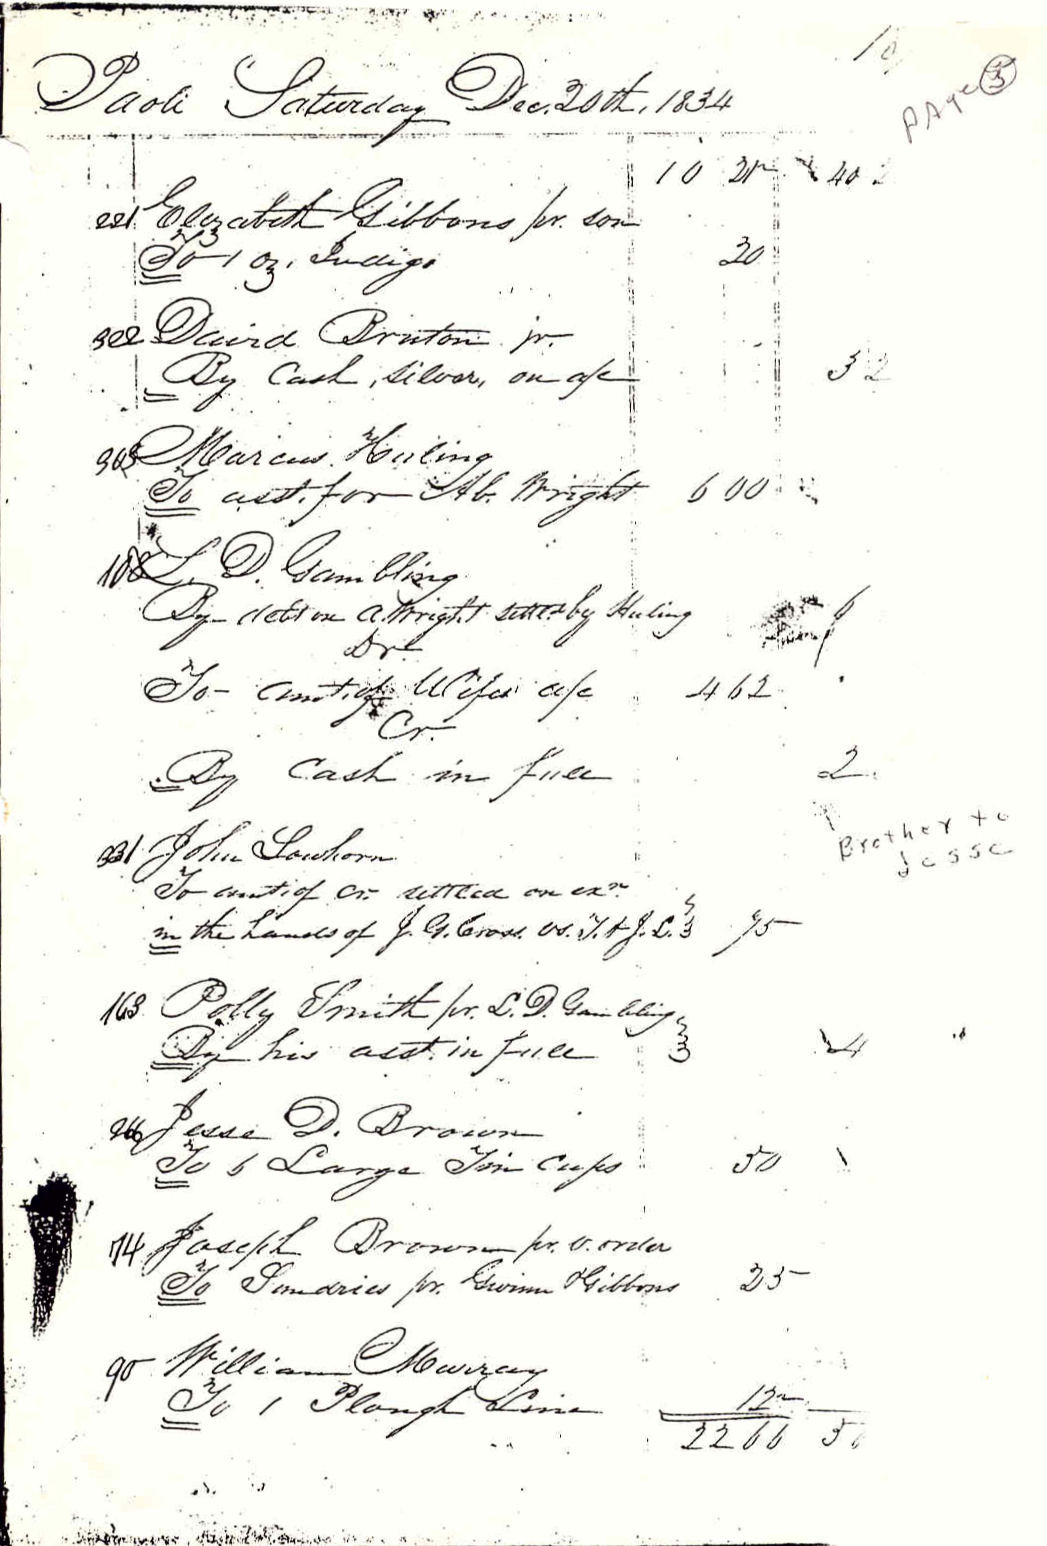 10
Page 3
Paoli Saturday Dec. 20th, 1834
10 21 40
221 Elizabeth Gibbons pr. son
To 1 oz, Indigo 20
322 David Bruton jr.
By Cash, silver, on a/c 32
303 Marcus Huling
To asst. for Ab. Wright 6 00
108 L. D. Gambling
By debt on A. Wright settd by Huling 6
Dr
To amt. of Wifes a/c 4 62
Cr.
By Cash in full 2
Brother to
Jesse
331 John Lawhorn
To amt. of cr. settled on exn
in the hands of J. G. Cross vs. T. & J. L. 75
163 Polly Smith pr. L. D. Gambling
By his asst. in full 4
Jesse D. Brown
To 6 Large Tin Cups 50
74 Joseph Brown pr. v. order
To Sundries pr. Gwinn & Gibbons 25
90 William Murray
To 1 Plough Line 12
22 66